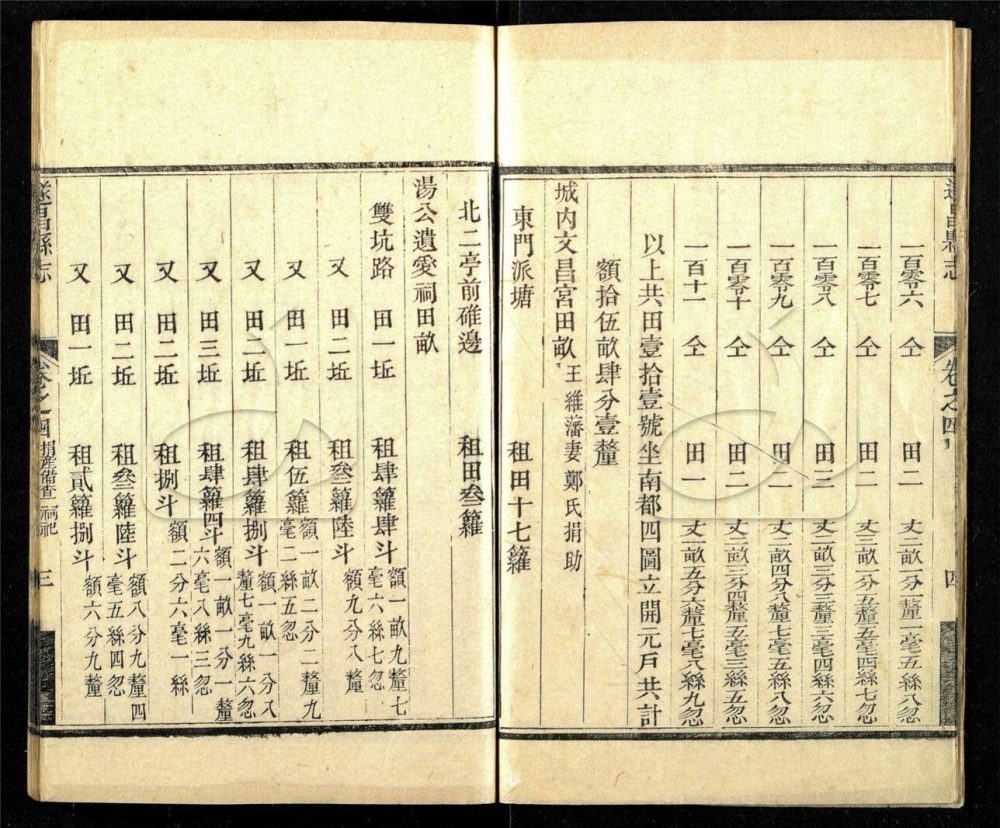 遂昌縣志 卷之四 四
一百零六 仝 田二 丈二畝一分一釐一毫五絲八忽
一百零七 仝 田二 丈三畝一分五釐五毫四絲七忽
一百零八 仝 田三 丈二畝三分三釐三毫四絲六忽
一百零九 仝 田一 丈一畝四分八釐七毫五絲八忽
一百零十 仝 田二 丈二畝三分四釐五毫三絲五忽
一百十一 仝 田一 丈一畝五分六釐七毫八絲九忽
以上共田壹拾壹號坐南都四圖立開元戶共計
額拾伍畝肆分壹釐
城內文昌宮田畝王維藩妻鄭氏捐助
東門派塘 租田十七籮
北二亭前碓邊 租田叄籮
湯公遺愛祠田畝
雙坑路 田一坵 租肆籮肆斗額一畝九釐七毫六絲七忽
又 田二坵 租叄籮陸斗額九分八釐
又 田一坵 租伍籮額一畝二分二釐九毫二絲五忽
又 田二坵 租肆籮捌斗額一畝一分八釐七毫九絲六忽
又 田三坵 租肆籮四斗額一畝一分一釐六毫八絲三忽
又 田二坵 租捌斗額二分六毫一絲
又 田二坵 租叄籮陸斗額八分九釐四毫五絲四忽
又 田一坵 租貳籮捌斗額六分九釐
遂昌縣志 卷之四捐產備查 祠祀 三